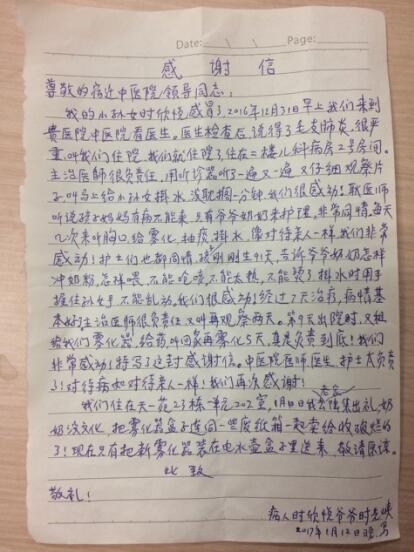 Date: \ \ Page:
感 谢 信
尊敬的宿迁中医院领导同志:
我的小孙女时欣悦感冒了,2016年12月31日早上我们来到
贵医院中医院看医生。医生检查后,说得了毛支肺炎,很严
重,叫我们住院,我们就住院了,住在二楼儿科病房2号房间。
主治医师很负责任,用听诊器听了一遍又一遍,又仔细观察片
子,叫马上给小孙女掛水,没耽搁一分钟,我们很感动!耿医师
听说孩子妈妈有病不能来,只有爷爷奶奶来护理,非常同情,每天
几次来听胸口,给雾化,抽痰,掛水,像对待亲人一样,我们非常
感动!护士们也都同情,刚生91天,告诉爷爷奶奶怎样
冲奶粉,怎样喂,不能呛咳,不能太热,不能烫了,掛水时用手
握住孙女手,不能乱动,我们很感动!经过7天治疗,病情基
本好,主治医师很负责任,又叫再观察两天。第9天出院时,又租
给我们雾化器,给药叫回家再雾化5天,真是负责到底!我们
非常感动!特写了这封感谢信。中医院医师医生,护士太负责
了!对待病如对待亲人一样!我们再次感谢!
我们住在天一苑23栋一单元202室,1月10日我去老家出礼,奶
奶没文化,把雾化器盒子连同一些废纸箱一起卖给收破烂的
了!现在只有把新雾化器装在电水壶盒子里送来,敬请原谅。
此致
敬礼!
病人时欣悦爷爷时
2017年1月12日晚写